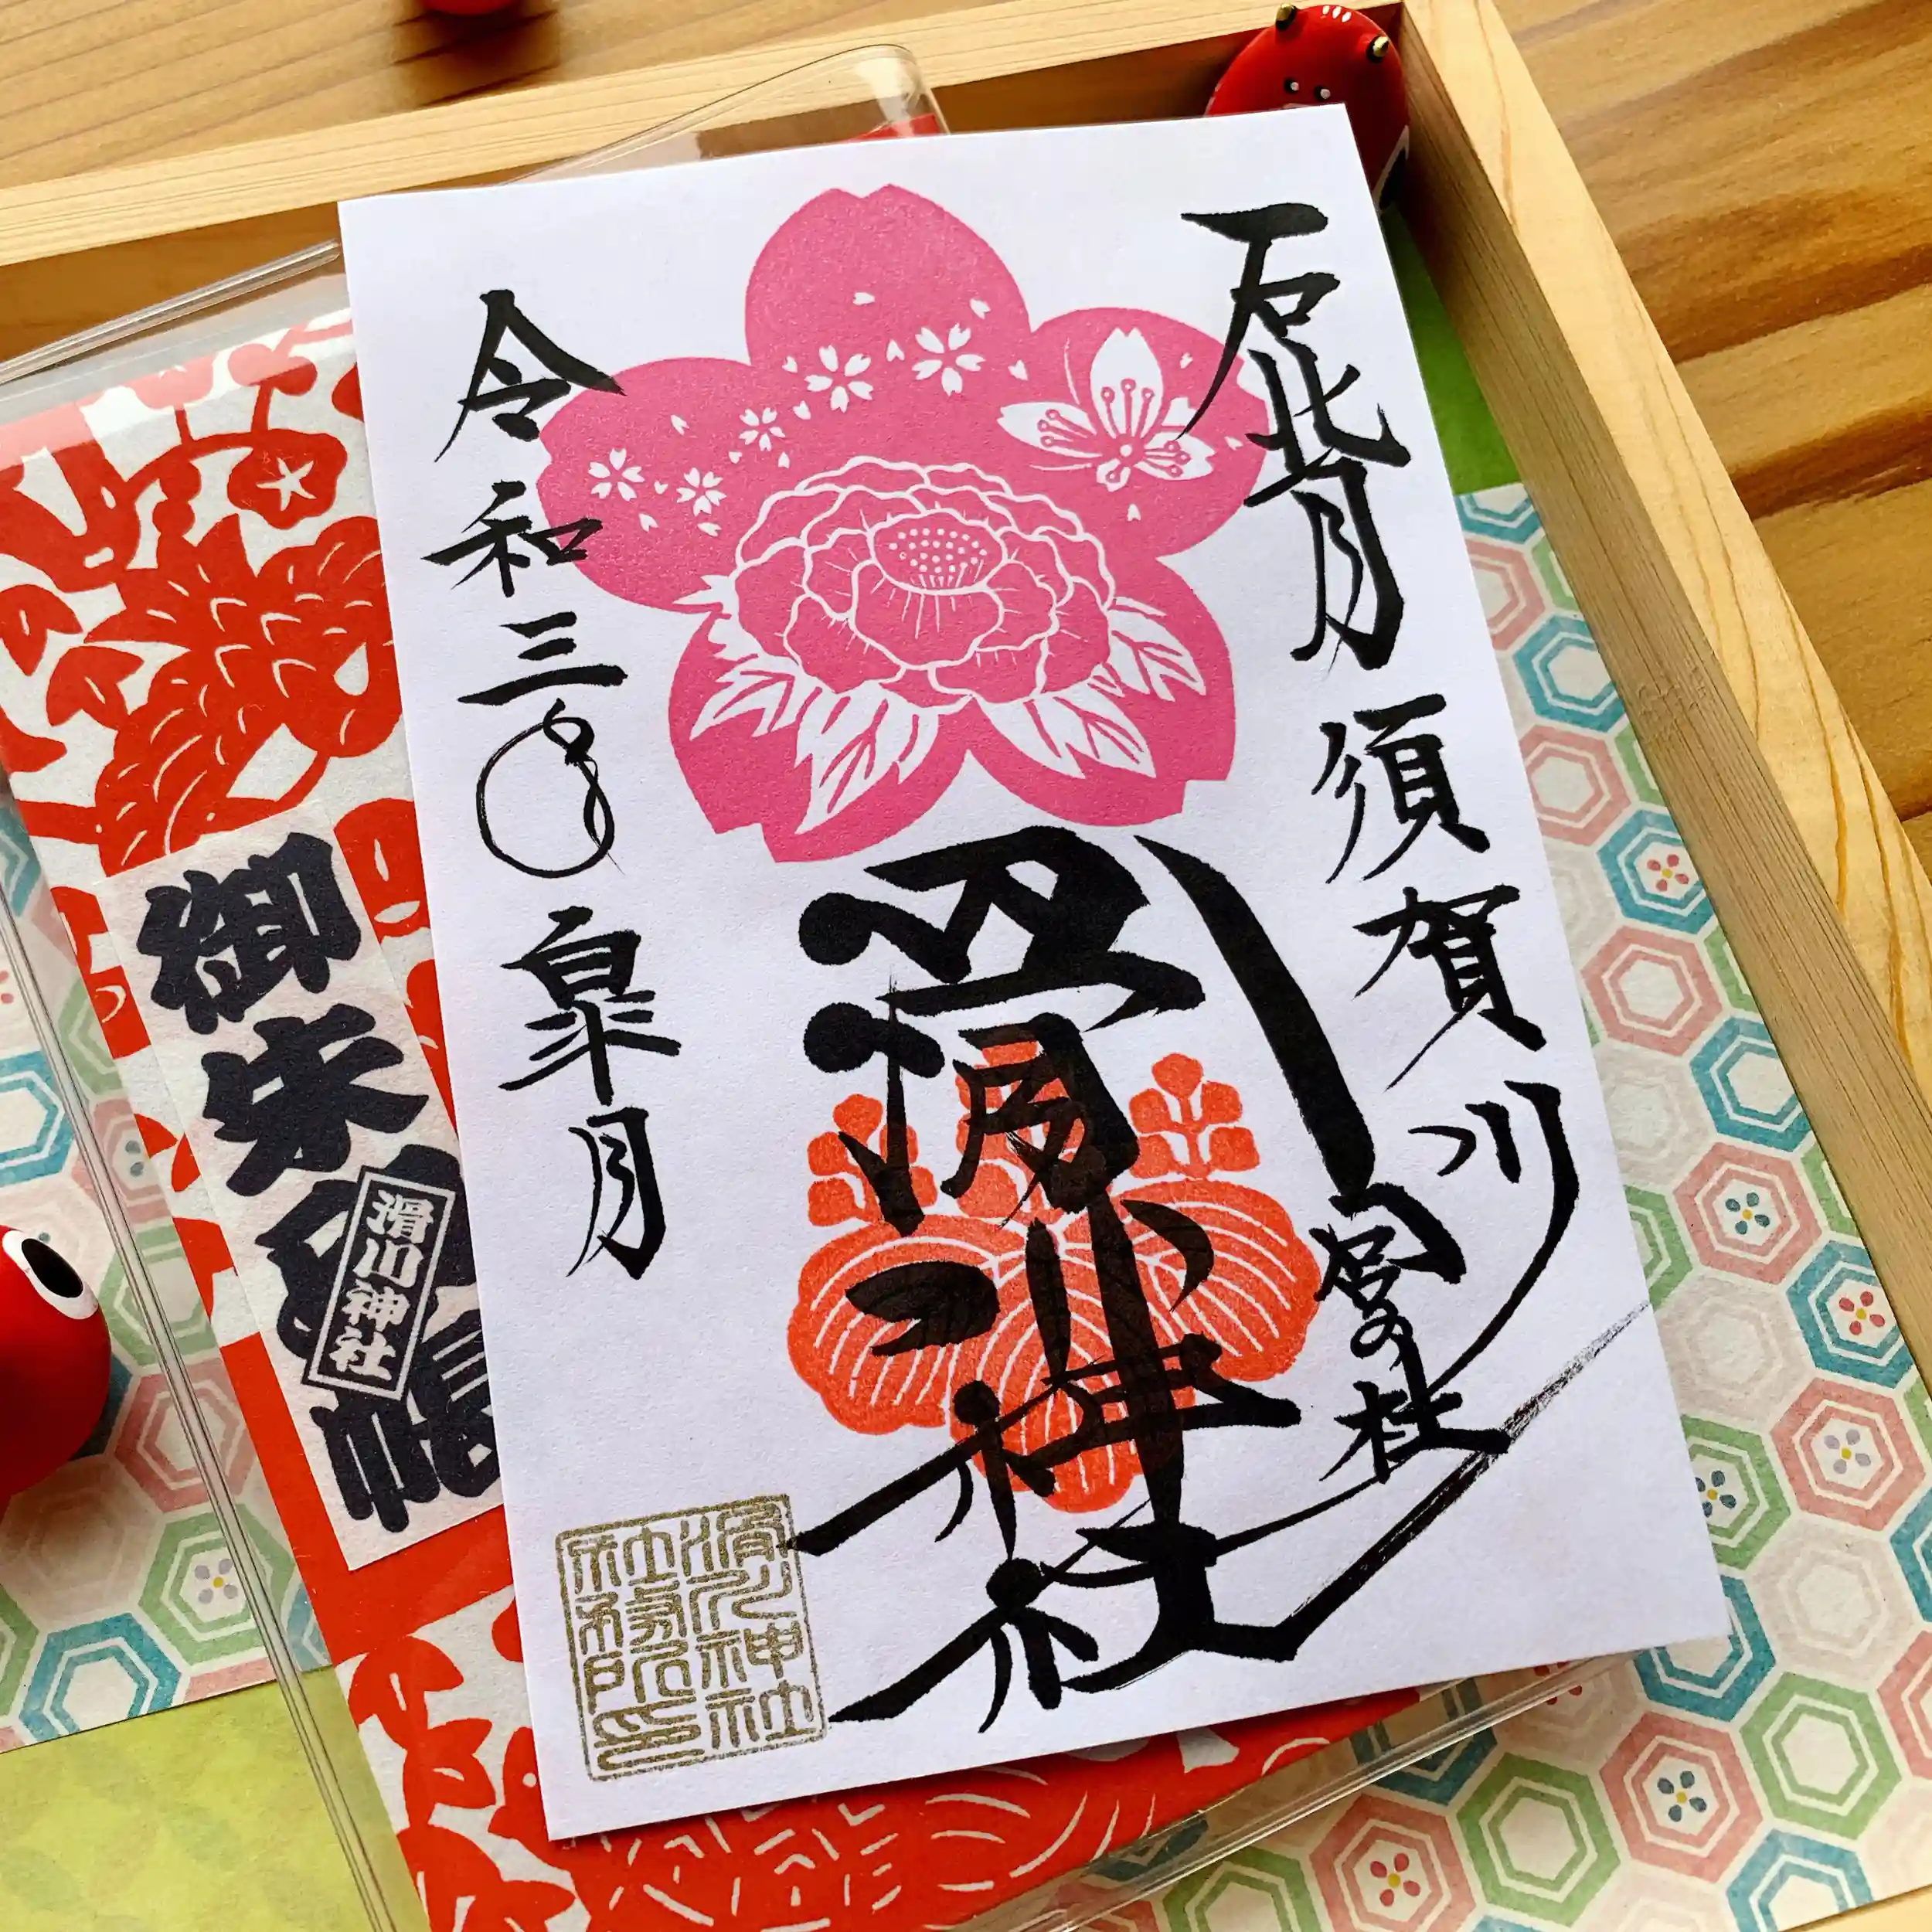 石背 須賀川
宮の杜
滑川神社
令和三年 皐月
滑川神社
社務所印
御朱印帳
滑川神社